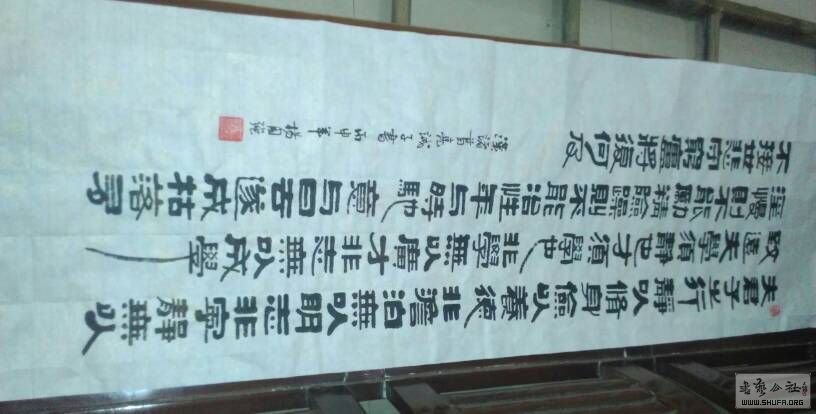 夫君子之行靜以脩身儉以養德非澹泊無以明志非寧靜無以
致遠夫學須靜也才須學也非學無以廣才非志無以成學
淫慢則不能勵精險躁則不能治性年与時馳意与日去遂成枯落多
不接世悲守窮廬將復何及
漢諸葛亮誡子書 丙申年
书艺公社
WWW.SHUFA.ORG